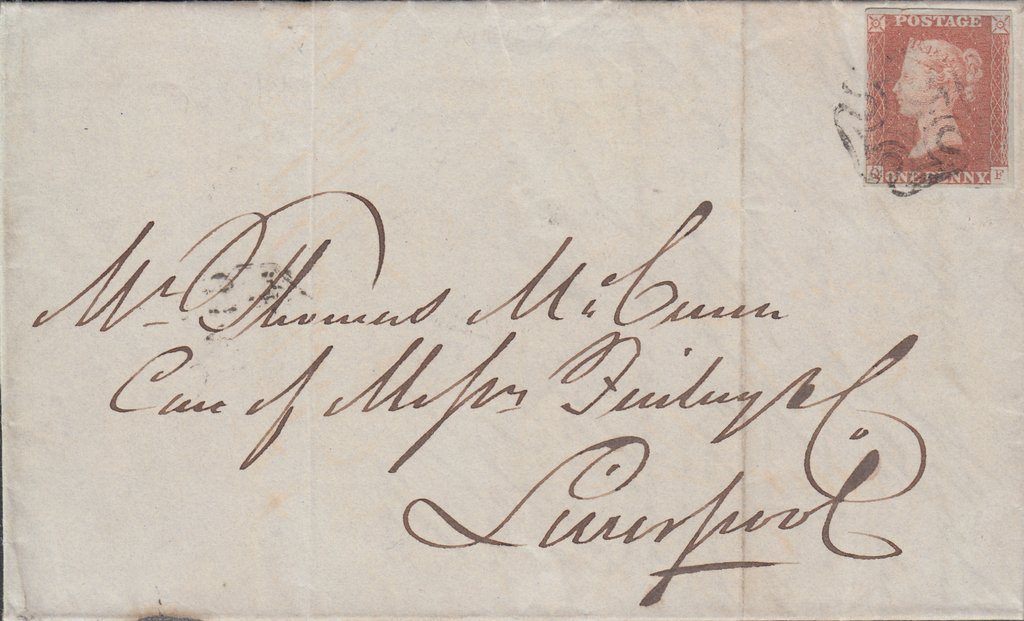 POSTAGE
ONE PENNY.
F
Mr Thomas McCunn
Care of Messrs Finlay & Co
Liverpool